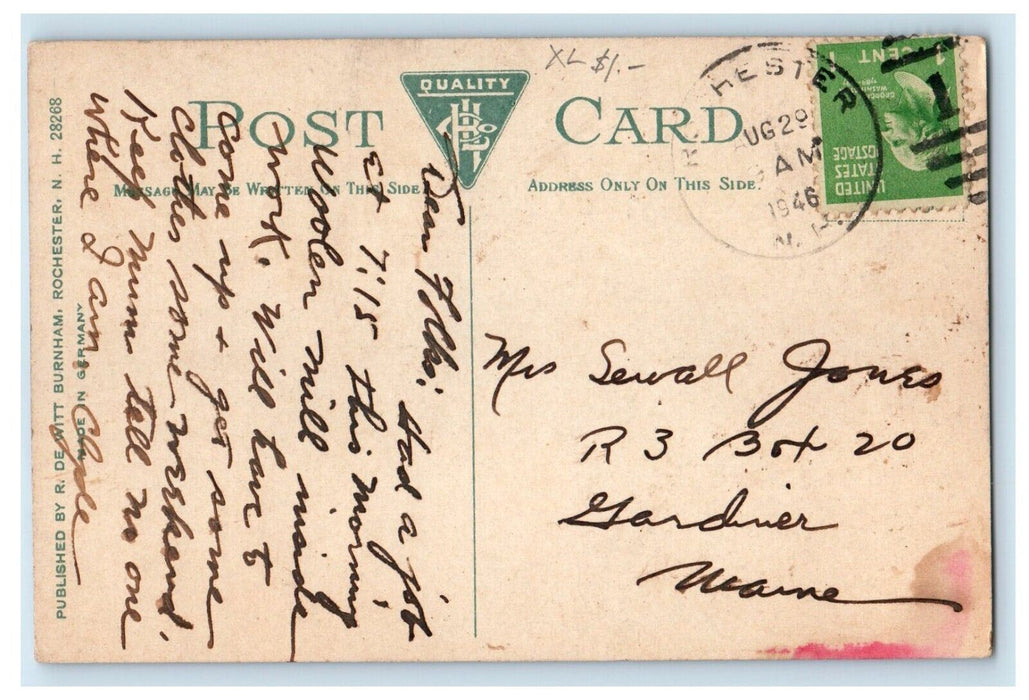 XL $1.-
POST CARD
QUALITY
MESSAGE MAY BE WRITTEN ON THIS SIDE
ADDRESS ONLY ON THIS SIDE.
1 CENT
GEORGE
WASHINGTON
UNITED
STATES
POSTAGE
HESTER
UG 29
AM
1946
N. H.
Dear Folks: Had a job
at 7:15 this morning
Woolen mill inside
work. Will have to
Come up + get some
Clothes some weekend.
Keep mum tell no one
where I am Clyde
Mrs Sewall Jones
R 3 Box 20
Gardiner
Maine
PUBLISHED BY R. DEWITT BURNHAM, ROCHESTER, N. H. 28268
MADE IN GERMANY